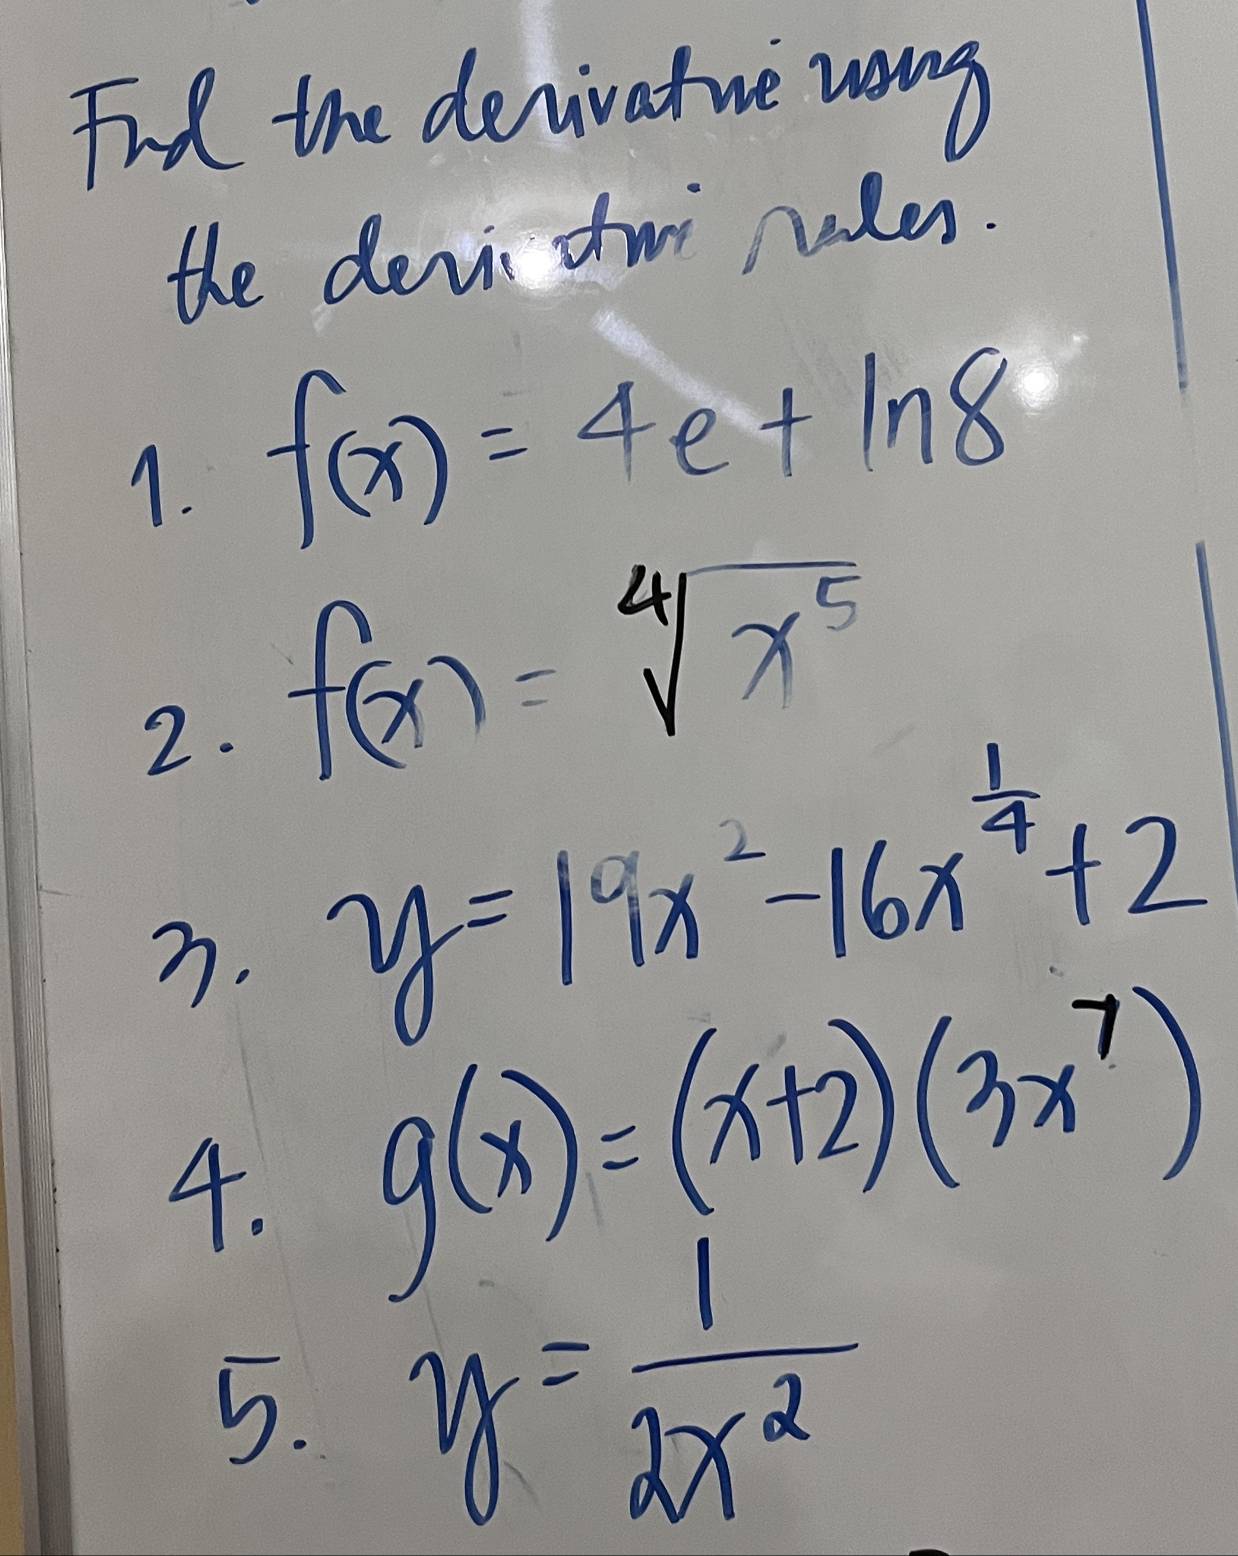 Find the derivative using
the derivative rules.
1. f(x) = 4e + ln8
2. f(x) = ∜(x⁵)
3. y = 19x² - 16x^(1/4) + 2
4. g(x) = (x+2)(3x⁷)
5. y = 1/(2x²)